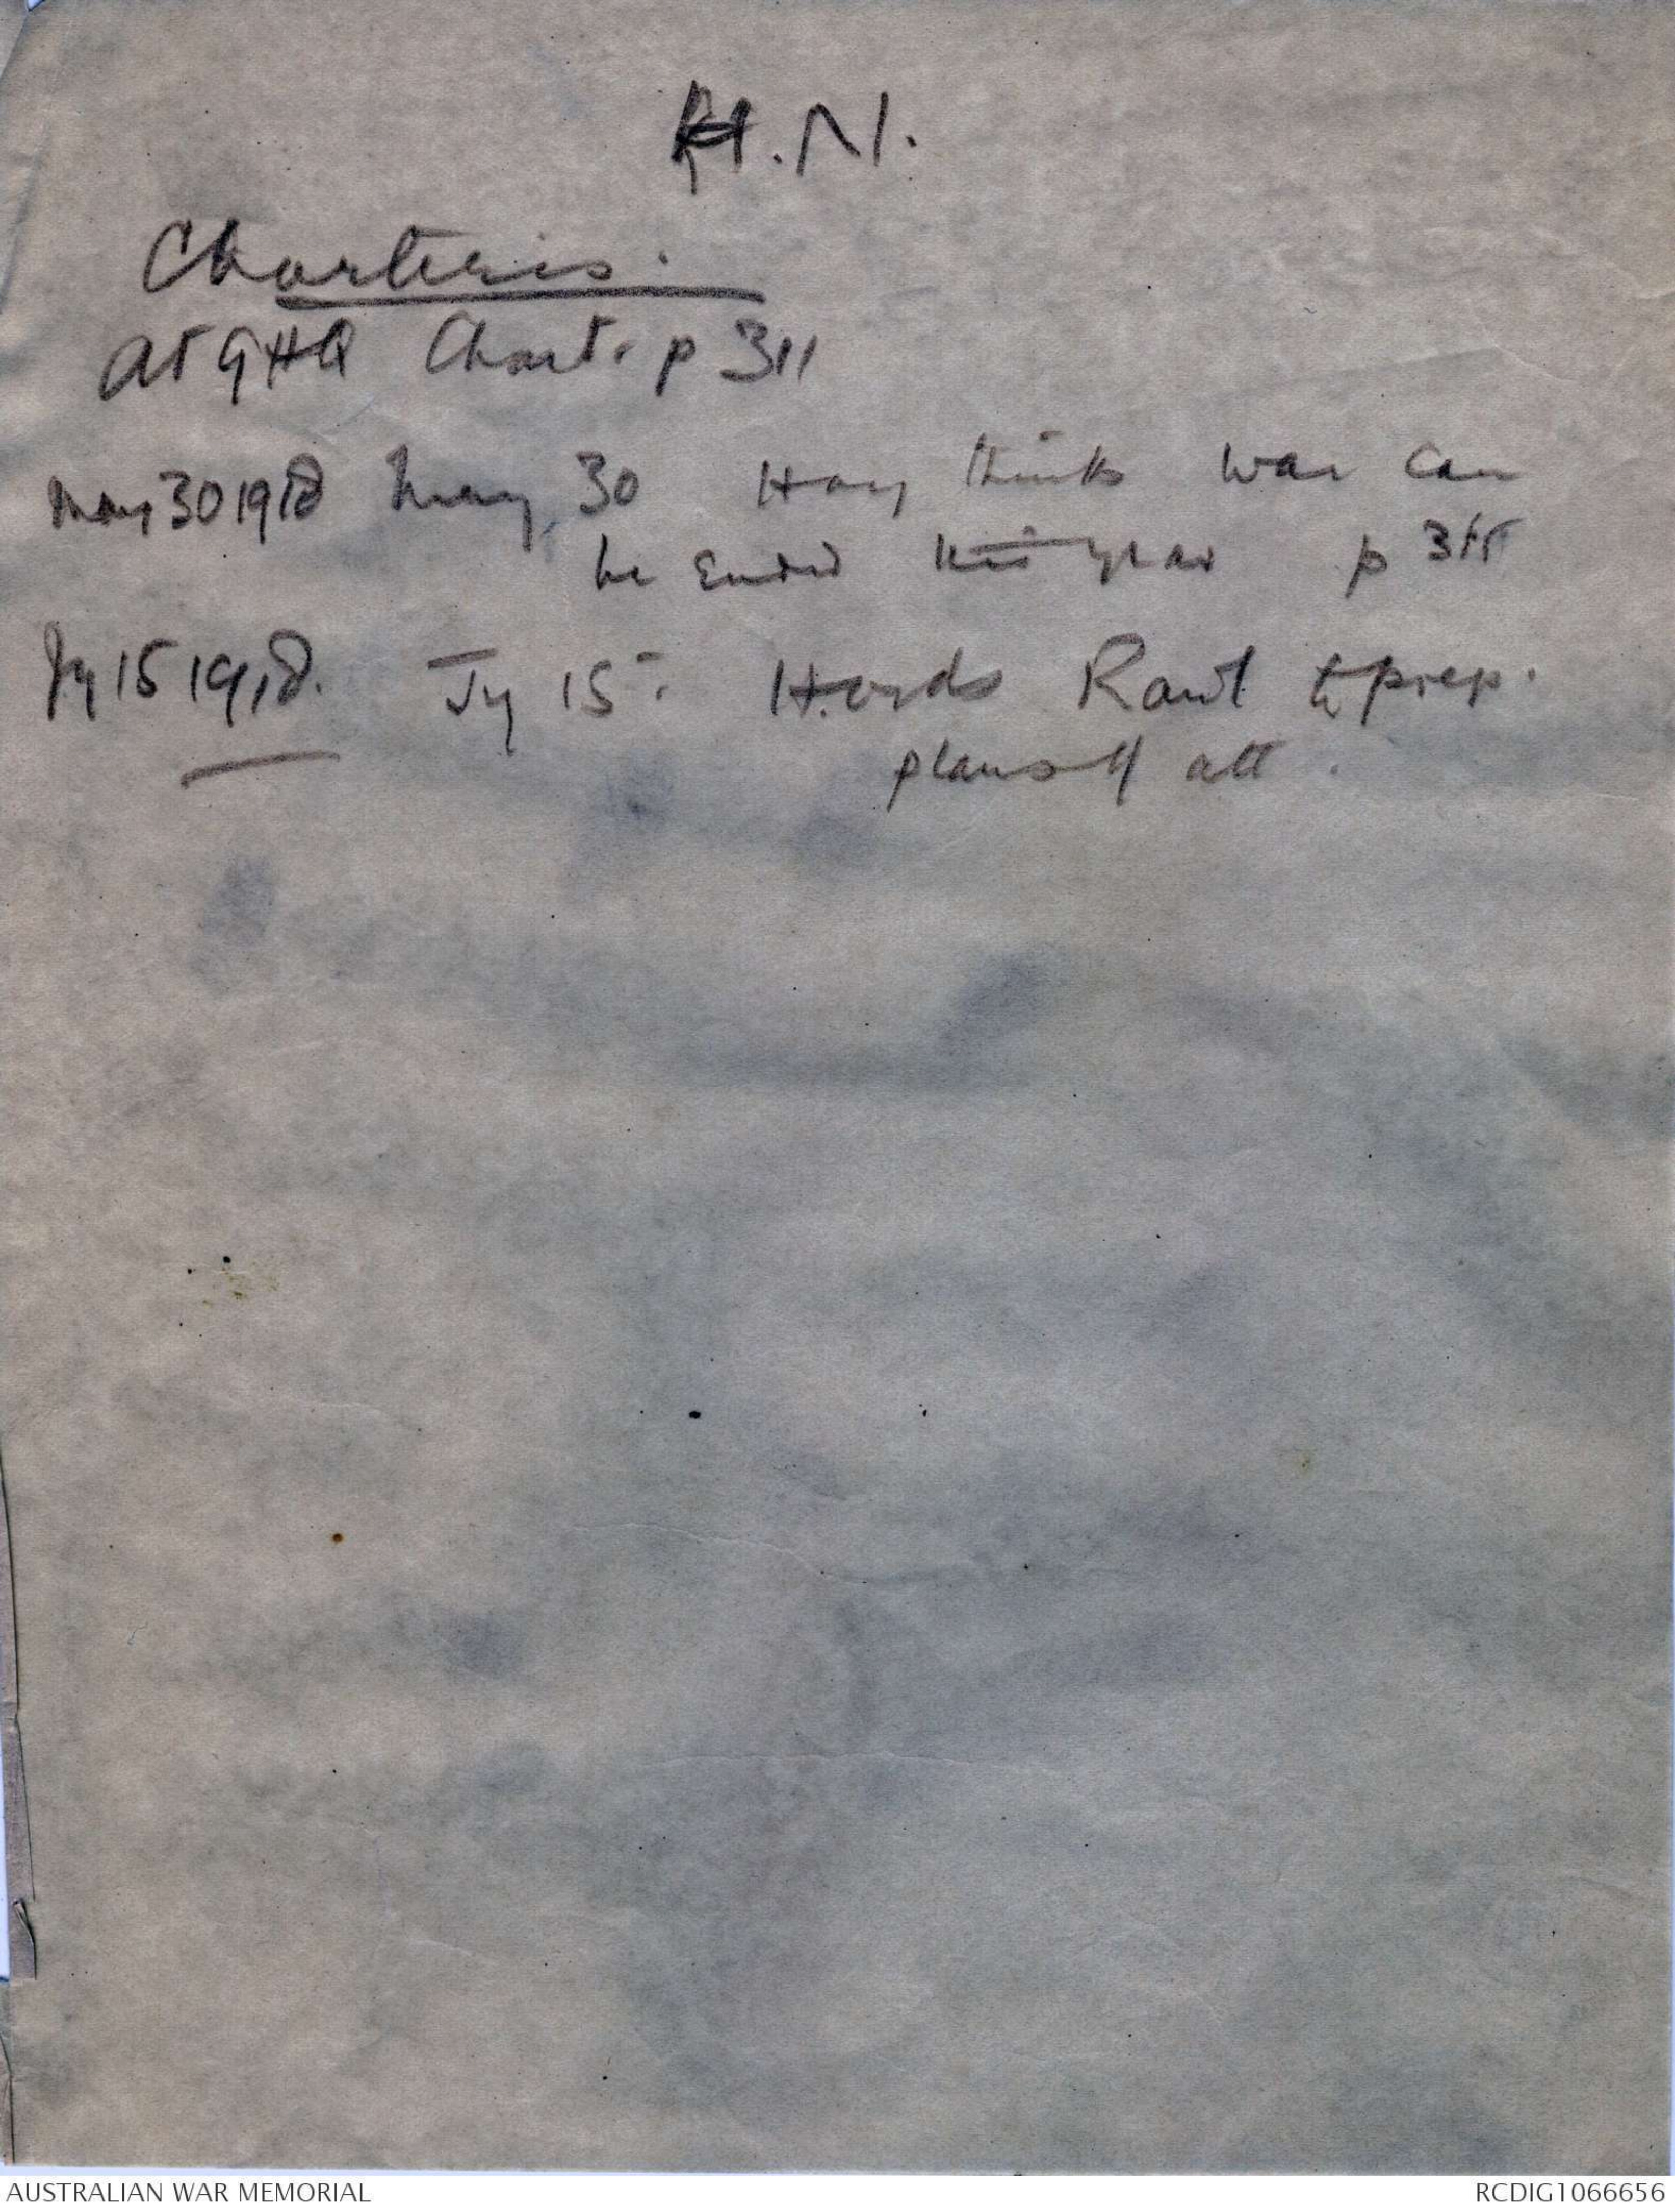 H.N.
Charteris.
At GHQ Chart. p 311
May 30 1918 May, 30 Haig thinks war can
be ended this year p 315
Jy 15 1918. Jy 15. H. ords Rawl to prep.
plans of att.
AUSTRALIAN WAR MEMORIAL
RCDIG1066656